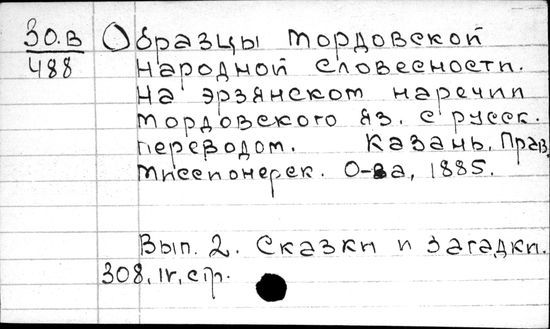 30.В Образцы мордовской
488 народной словесности.
На эрзянском наречии
мордовского яз. с русск.
переводом. Казань, Прав.
миссионерск. О-ва, 1885.
Вып. 2. Сказки и загадки.
308, IV, стр.